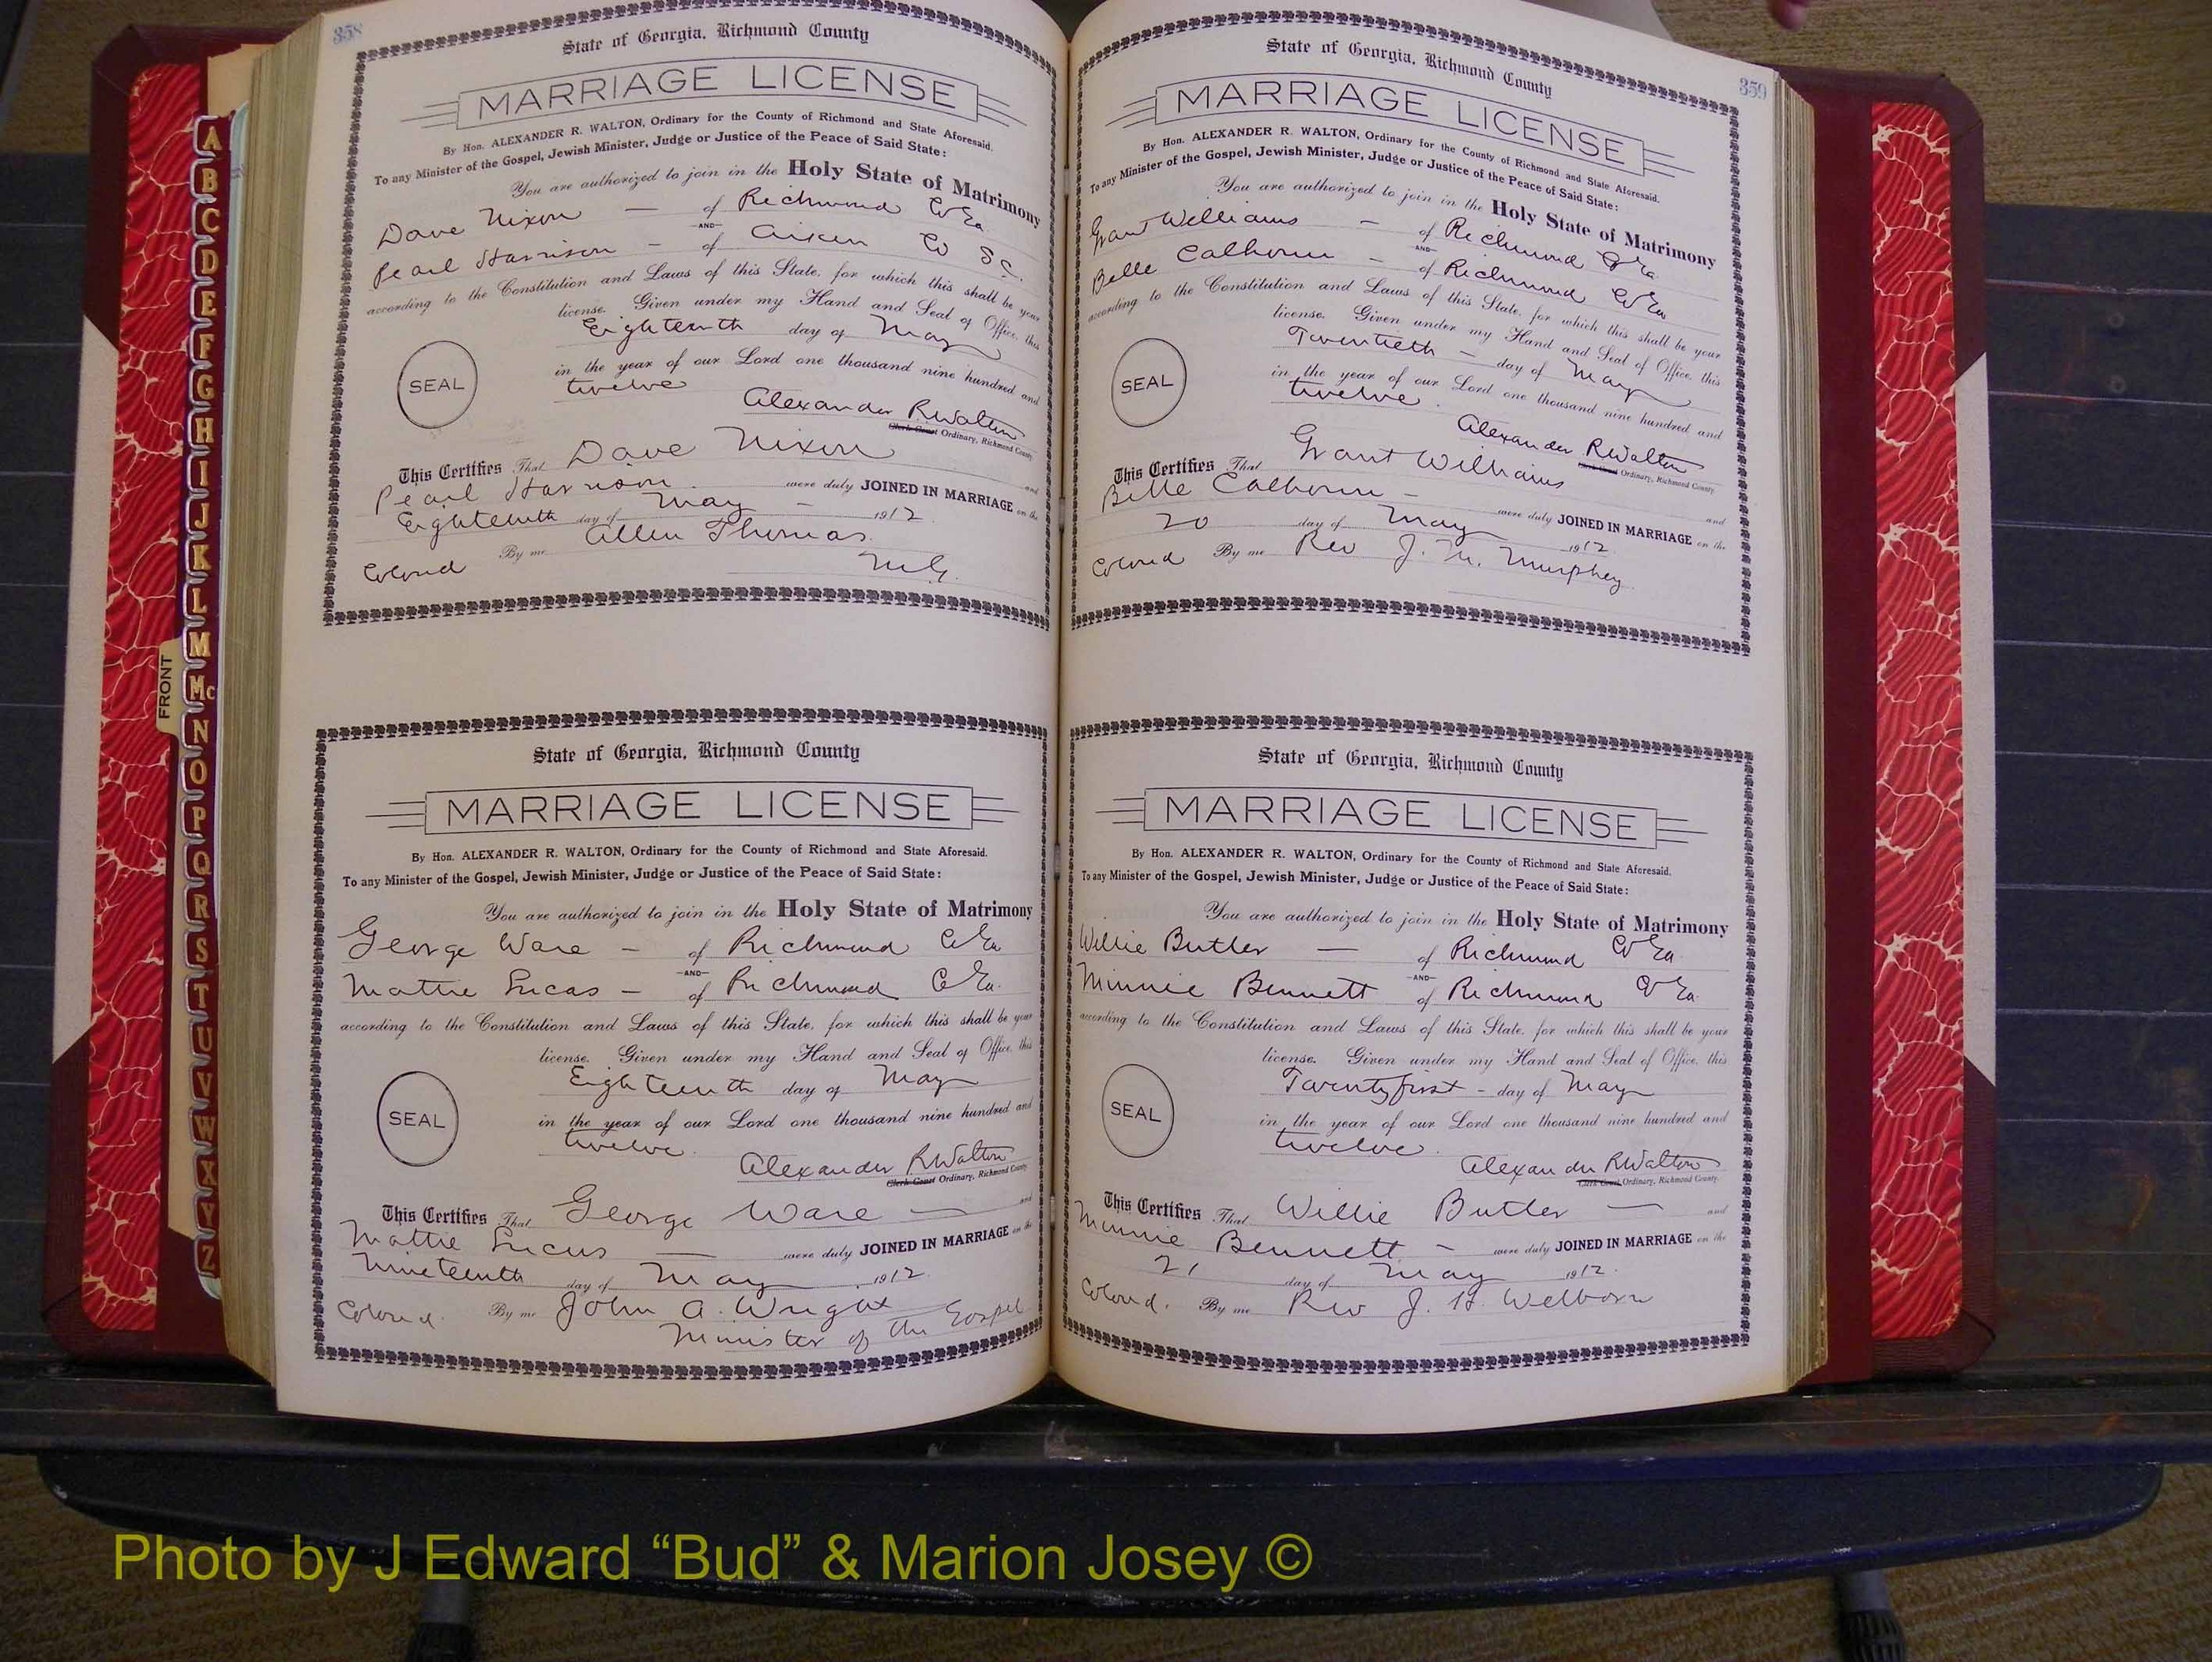 358
State of Georgia, Richmond County
MARRIAGE LICENSE
By Hon. ALEXANDER R. WALTON, Ordinary for the County of Richmond and State Aforesaid.
To any Minister of the Gospel, Jewish Minister, Judge or Justice of the Peace of Said State:
You are authorized to join in the Holy State of Matrimony
Dave Nixon — of Richmond Co Ga
AND
Pearl Harrison — of Aiken Co S.C.
according to the Constitution and Laws of this State, for which this shall be your
license. Given under my Hand and Seal of Office, this
Eighteenth day of May
SEAL
in the year of our Lord one thousand nine hundred and
twelve
Alexander R Walton
Clerk Court Ordinary, Richmond County
This Certifies That Dave Nixon and
Pearl Harrison were duly JOINED IN MARRIAGE on the
Eighteenth day of May — 1912
Colored By me Allen Thomas
M.G.
State of Georgia, Richmond County
MARRIAGE LICENSE
By Hon. ALEXANDER R. WALTON, Ordinary for the County of Richmond and State Aforesaid.
To any Minister of the Gospel, Jewish Minister, Judge or Justice of the Peace of Said State:
You are authorized to join in the Holy State of Matrimony
George Ware — of Richmond Co Ga
AND
Mattie Lucas — of Richmond Co Ga.
according to the Constitution and Laws of this State, for which this shall be your
license. Given under my Hand and Seal of Office, this
Eighteenth day of May
SEAL
in the year of our Lord one thousand nine hundred and
twelve.
Alexander R Walton
Clerk Court Ordinary, Richmond County
This Certifies That George Ware — and
Mattie Lucus — were duly JOINED IN MARRIAGE on the
Nineteenth day of May, 1912.
Colored. By me John A. Wright Gospel
Minister of the
359
State of Georgia, Richmond County
MARRIAGE LICENSE
By Hon. ALEXANDER R. WALTON, Ordinary for the County of Richmond and State Aforesaid.
To any Minister of the Gospel, Jewish Minister, Judge or Justice of the Peace of Said State:
You are authorized to join in the Holy State of Matrimony
Grant Williams — of Richmond Co Ga
AND
Belle Calhoun — of Richmond Co Ga
according to the Constitution and Laws of this State, for which this shall be your
license. Given under my Hand and Seal of Office, this
Twentieth — day of May
SEAL
in the year of our Lord one thousand nine hundred and
twelve.
Alexander R Walton
Clerk Court Ordinary, Richmond County
This Certifies That Grant Williams and
Belle Calhoun — were duly JOINED IN MARRIAGE on the
20 day of May 1912
Colored By me Rev J. M. Murphey
State of Georgia, Richmond County
MARRIAGE LICENSE
By Hon. ALEXANDER R. WALTON, Ordinary for the County of Richmond and State Aforesaid.
To any Minister of the Gospel, Jewish Minister, Judge or Justice of the Peace of Said State:
You are authorized to join in the Holy State of Matrimony
Willie Butler — of Richmond Co Ga
AND
Minnie Bennett of Richmond Co Ga
according to the Constitution and Laws of this State, for which this shall be your
license. Given under my Hand and Seal of Office, this
Twenty first - day of May
SEAL
in the year of our Lord one thousand nine hundred and
twelve.
Alexander R Walton
Clerk Court Ordinary, Richmond County
This Certifies That Willie Butler — and
Minnie Bennett — were duly JOINED IN MARRIAGE on the
21 day of May 1912.
Colored. By me Rev J. H. Welborn
A
B
C
D
E
F
G
H
I
J
K
L
M
Mc
N
O
P
Q
R
S
T
U
V
W
X
Y
Z
FRONT
Photo by J Edward “Bud” & Marion Josey ©